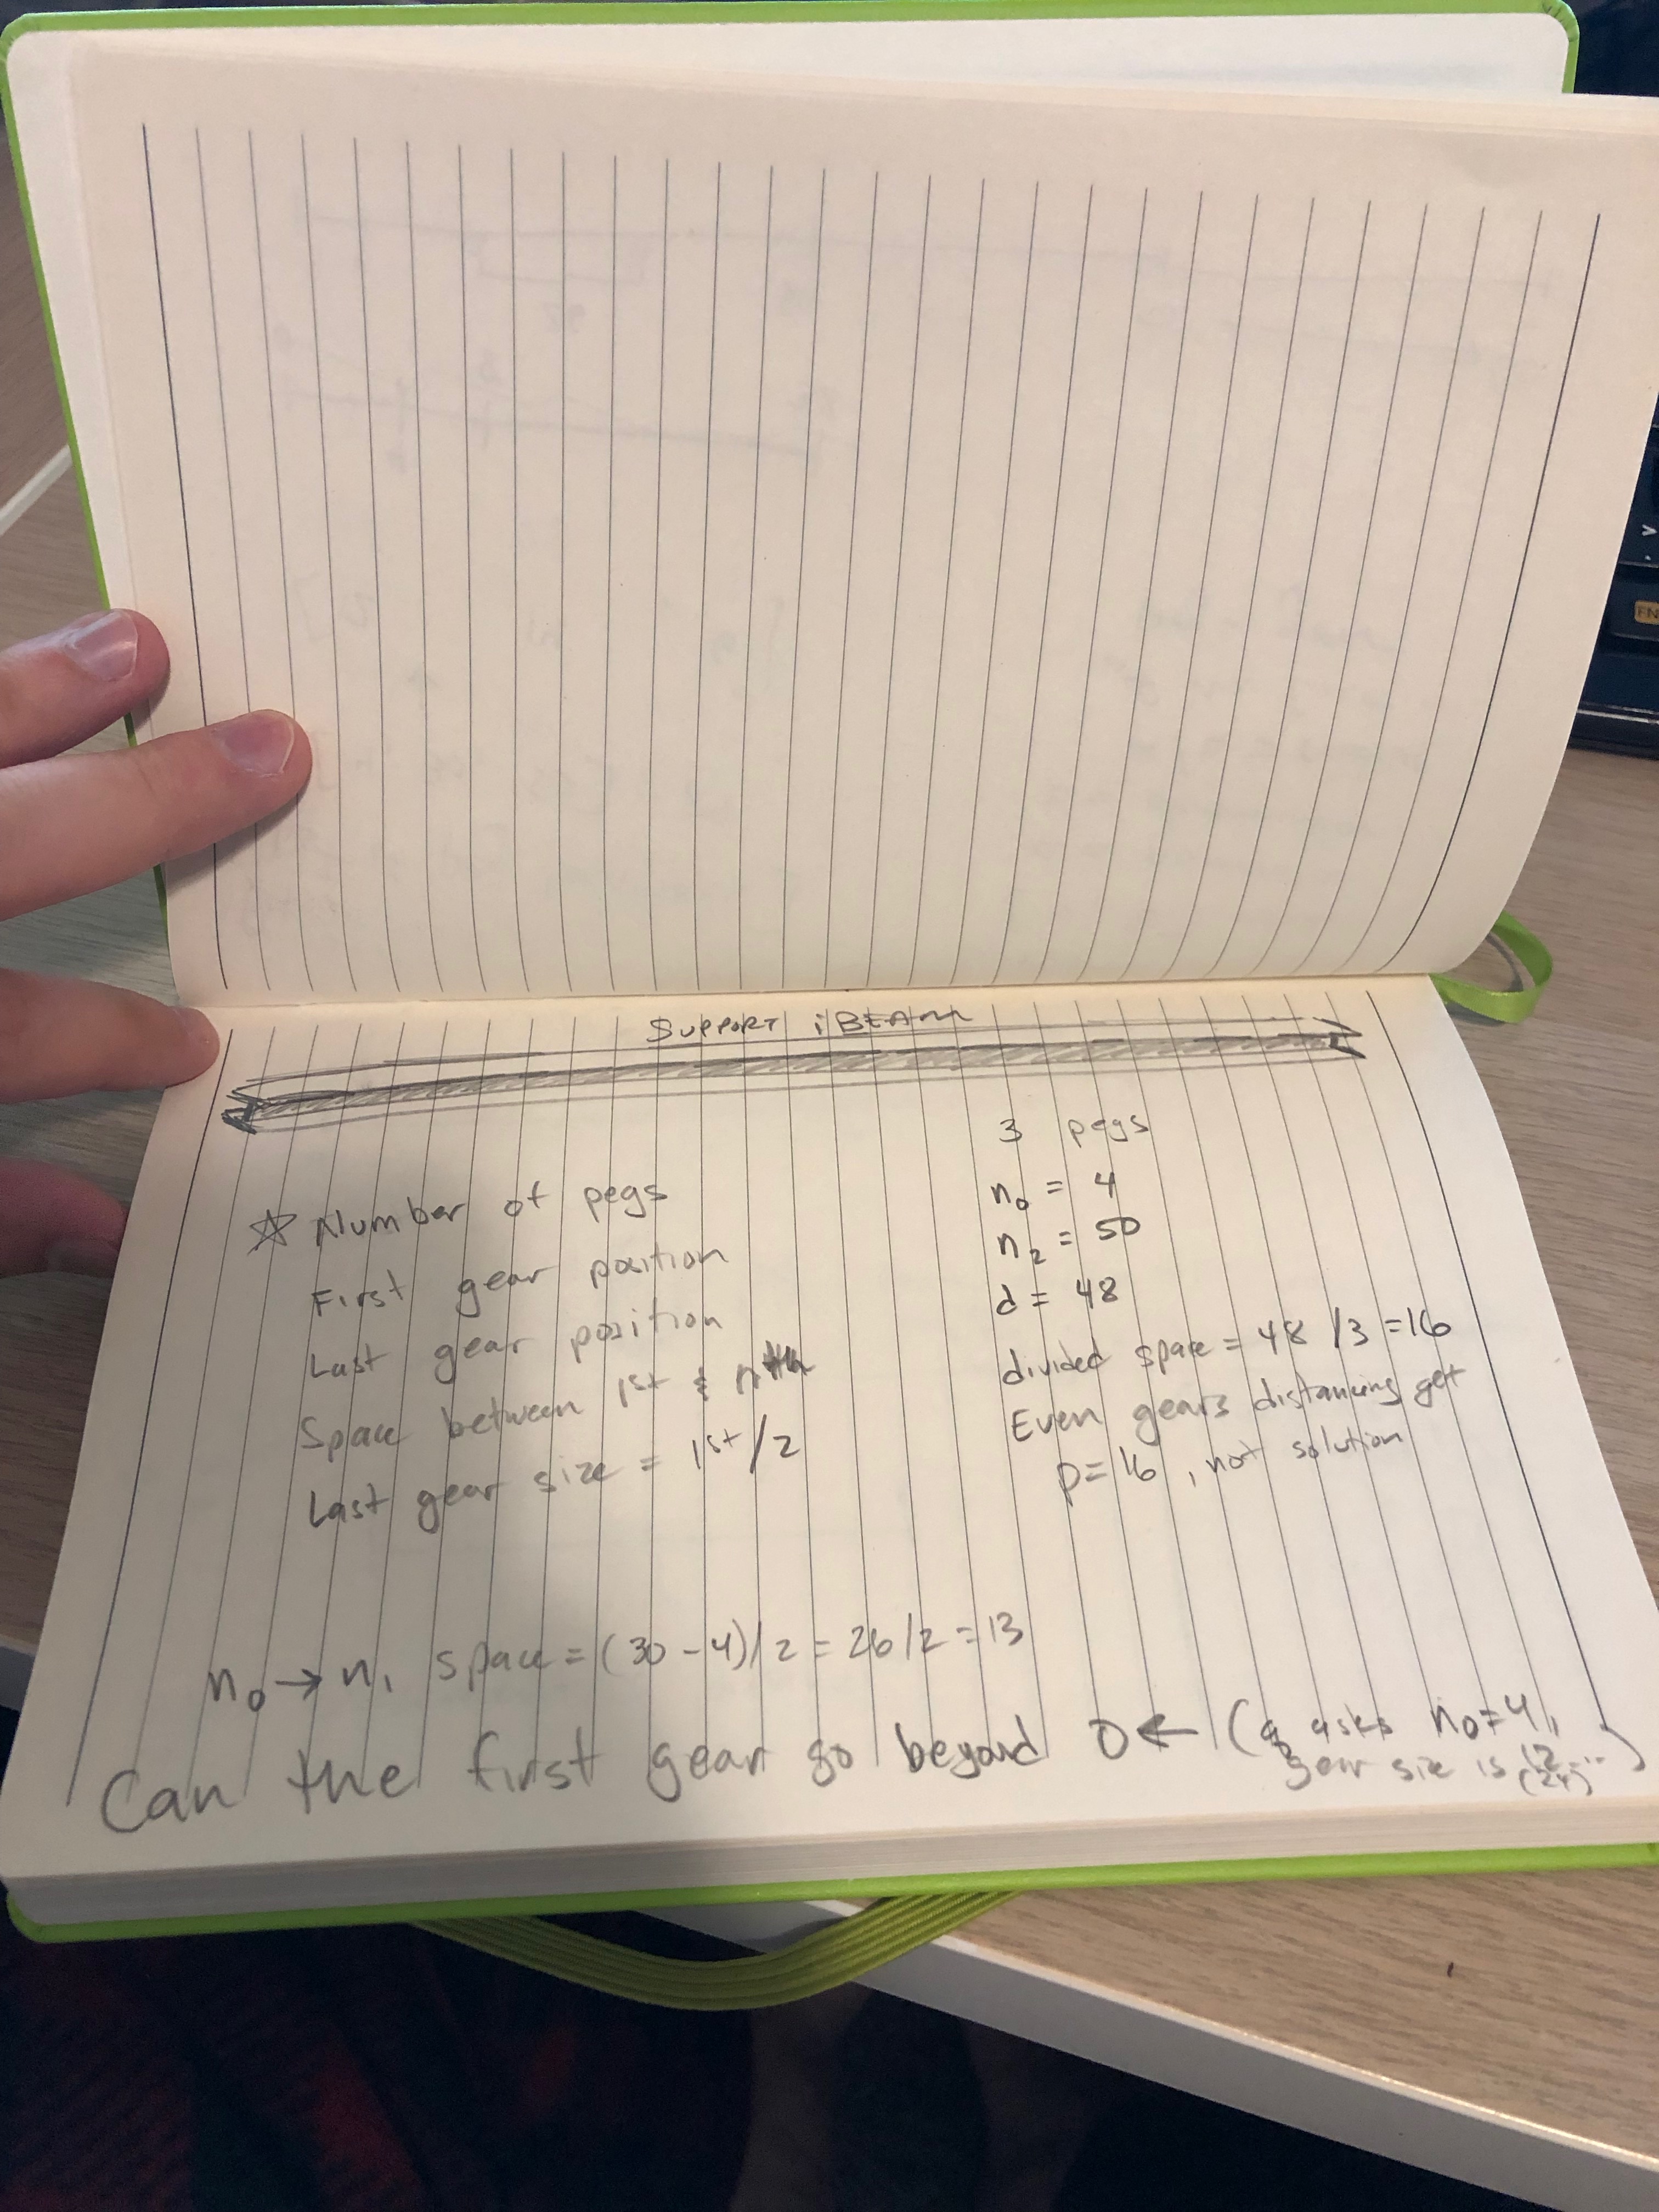 SUPPORT iBEAM
☆ Number of pegs
First gear position
Last gear position
Space between 1st & nth
Last gear size = 1st/2
3 pegs
n₀ = 4
n₂ = 50
d = 48
divided space = 48 /3 =16
Even gears distancing get
p= 16 , not solution
n₀ → n₁ space = (30 - 4)/2 = 26/2 = 13
Can the first gear go beyond 0 ← ( asks n₀=4,
gear size is 12 ... )
(24)
FN